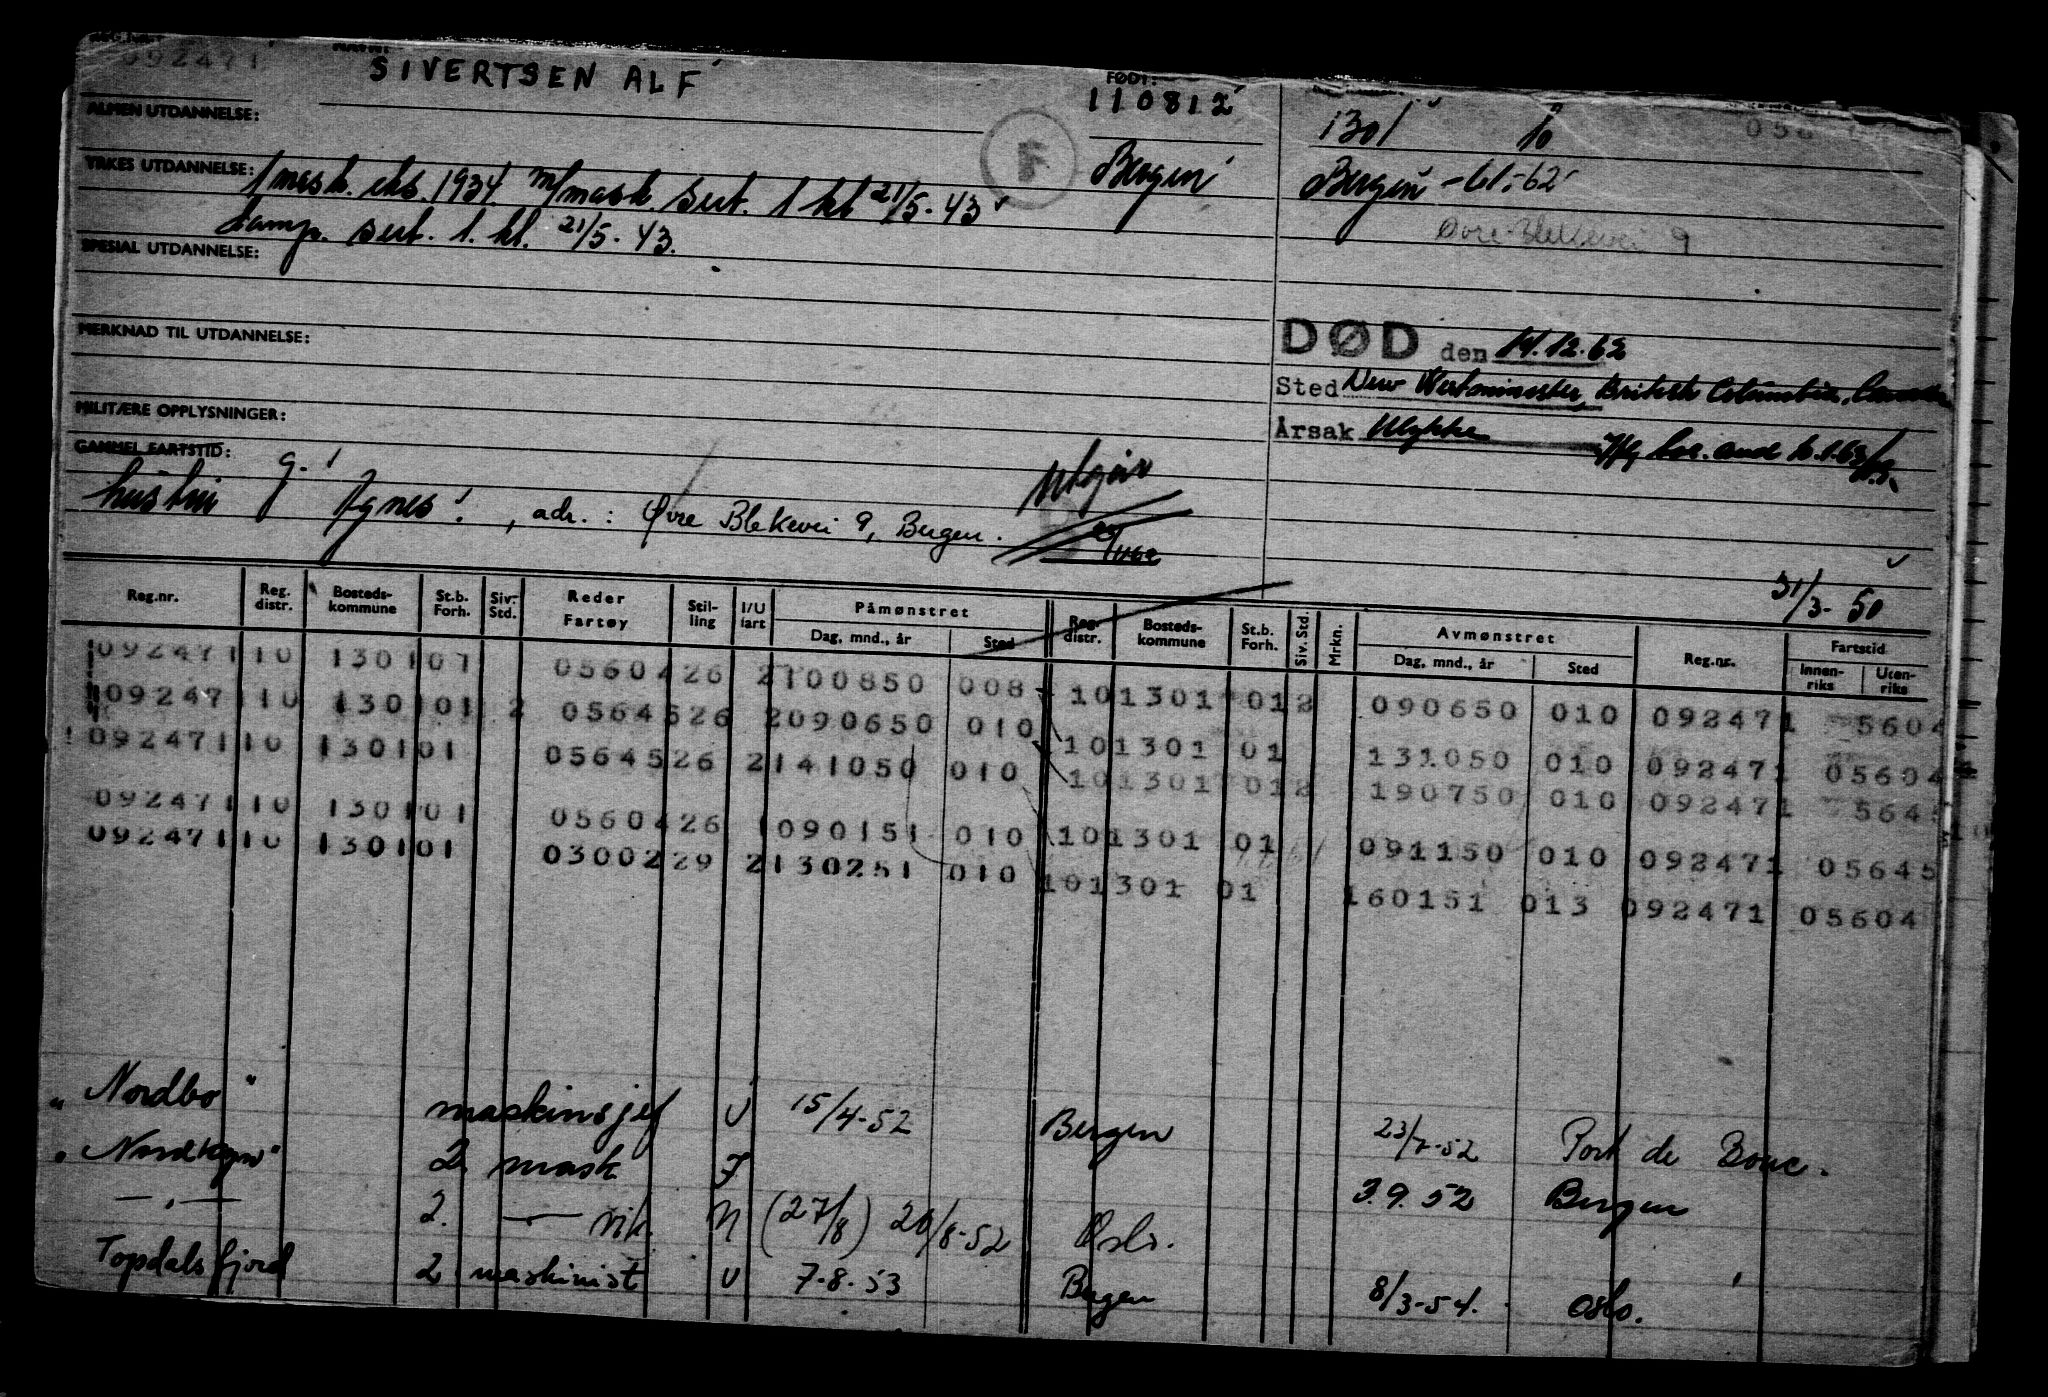 092471
SIVERTSEN ALF
FØDT:
110812
ALMEN UTDANNELSE:
Bergen
1301 10
Bergen -61-62
Øvre Blekevei 9
F
YRKES UTDANNELSE:
1 mask. eks. 1934. m/mask. sert. 1 kl 21/5-43
damp. sert. 1. kl. 21/5-43.
SPESIAL UTDANNELSE:
MERKNAD TIL UTDANNELSE:
DØD den 14.12.62
Sted New Westminster, British Columbia, Canada
Årsak Ulykke
MILITÆRE OPPLYSNINGER:
GAMMEL FARTSTID:
g.
hustru Agnes, adr.: Øvre Blekevei 9, Bergen.
Utgår
31/3-50
Reg.nr. Reg. distr. Bosteds-kommune St.b. Forh. Siv. Std. Reder Fartøy Stil-ling I/U fart Påmønstret Dag, mnd., år Sted Reg. distr. Bosteds-kommune St.b. Forh. Siv. Std. Mrkn. Avmønstret Dag, mnd., år Sted Reg.nr. Fartstid Innen-riks Uten-riks
092471 10 1301 01 05604 26 2 100850 008 10 1301 01 2 090650 010 092471 5604
092471 10 1301 01 2 05645 26 2 090650 010 10 1301 01 131050 010 092471 05604
092471 10 1301 01 05645 26 2 141050 010 10 1301 01 2 190750 010 092471 5645
092471 10 1301 01 05604 26 1 090151 010 10 1301 01 091150 010 092471 05645
092471 10 1301 01 03002 29 2 130251 010 10 1301 01 160151 013 092471 05604
"Nordbo" maskinsjef U 15/4-52 Bergen 23/7-52 Port de Bouc.
"Nordkyn" 2 mask F 3.9.52 Bergen
— " — 2. — vik. N (27/8) 28/8-52 Oslo.
Topdalsfjord 2 maskinist U 7-8-53 Bergen 8/3-54. Oslo.